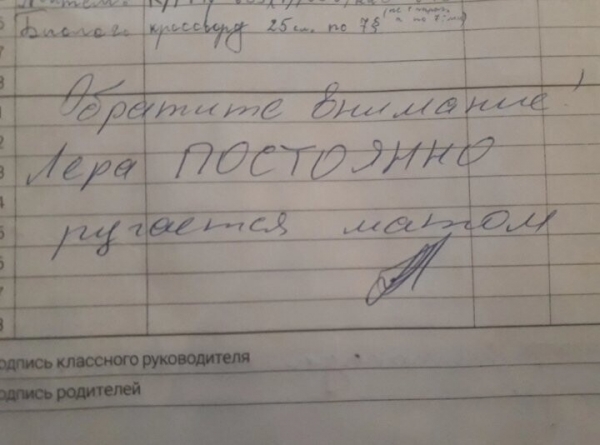 Биолог. кроссворд 25 сл. по 7§
Обратите внимание!
Лера ПОСТОЯННО
ругается матом
одпись классного руководителя
одпись родителей